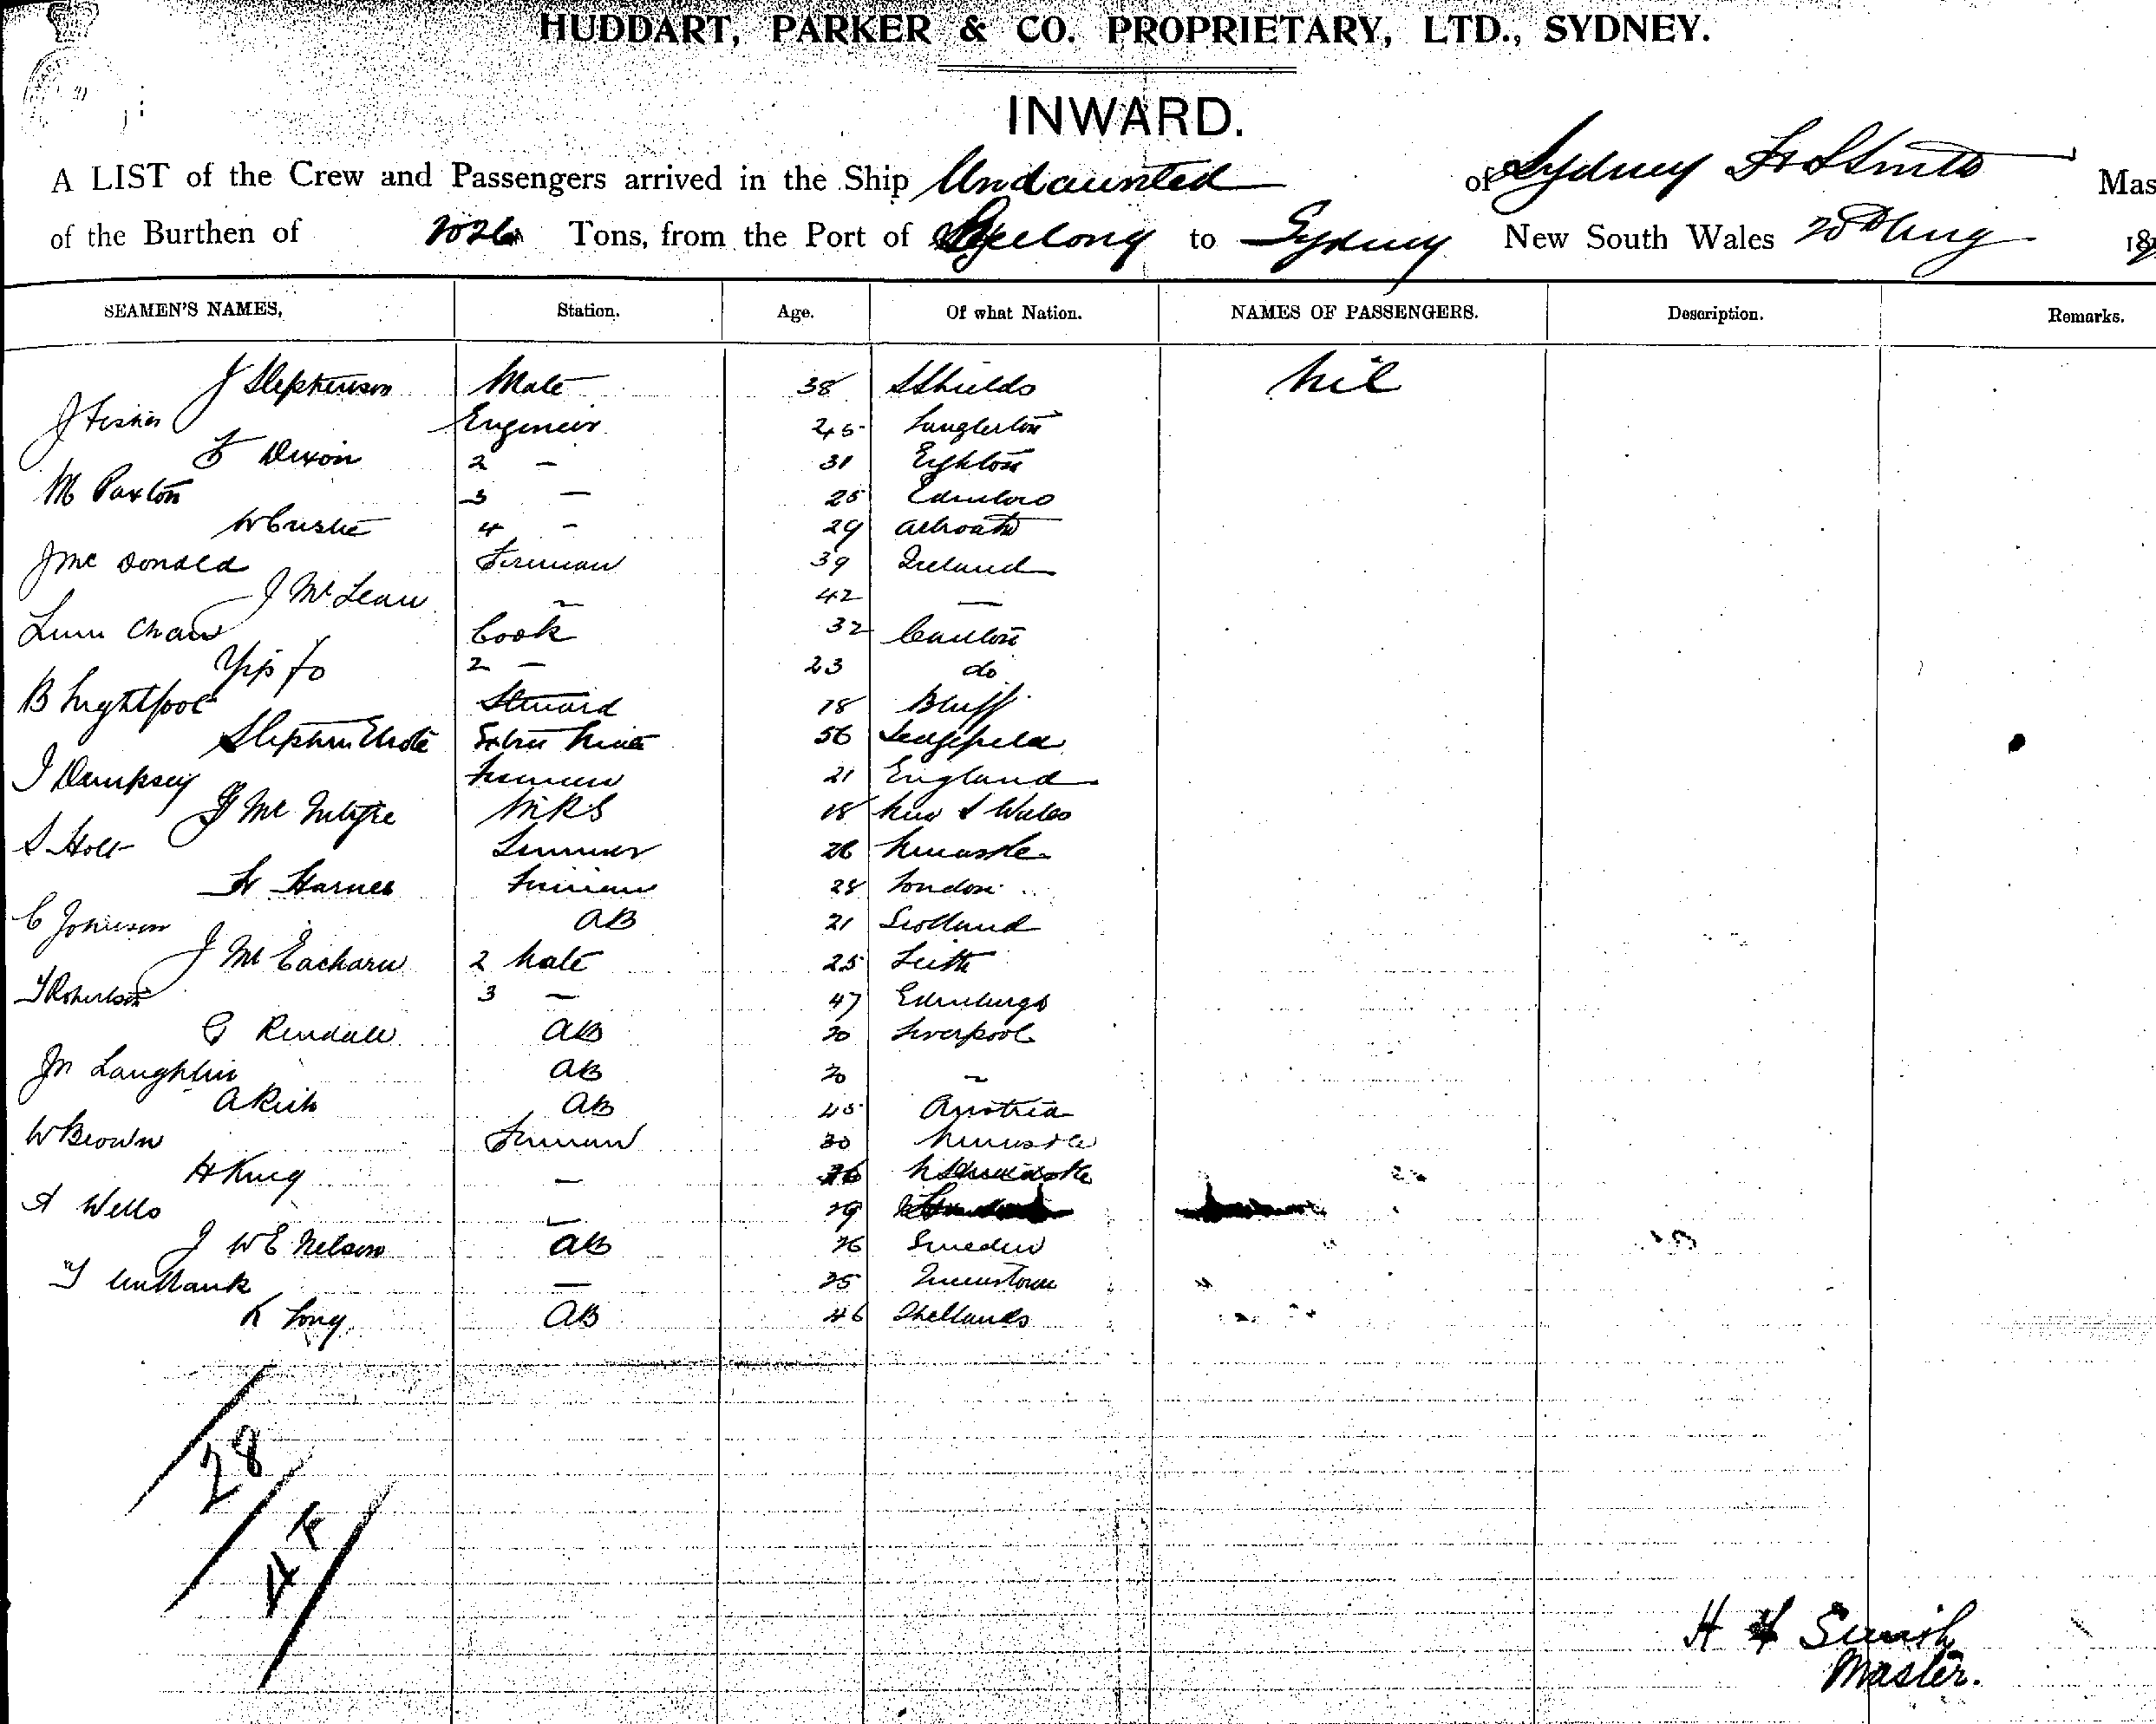 HUDDART, PARKER & CO. PROPRIETARY, LTD., SYDNEY.
INWARD.
A LIST of the Crew and Passengers arrived in the Ship Undaunted of Sydney Smith Mas
of the Burthen of Tons, from the Port of Geelong to Sydney New South Wales Aug 18
SEAMEN'S NAMES, Station. Age. Of what Nation. NAMES OF PASSENGERS. Description. Remarks.
J Stephenson Mate 38 S Shields nil
J Fisher Engineer 45
F Dixon 2 — 31 Eighton
M Paxton 3 — 25 Edinboro
4 - 29 Arbroath
J McDonald Fireman 39 Ireland
J McLean — 42 —
Lum Chaw Cook 32 Canton
Yip Fo 2 — 23 do
B Lightfoot Steward 18 Bluff
Stephen 56 Sedgefield
J Dempsey Fireman 21 England
McIntyre MRS 18 New S Wales
S Holt Trimmer 26 Newcastle
Harnes Fireman 28 London
C Johnson AB 21 Scotland
J McEacharn 2 Mate 25 Leith
Robertson 3 — 47 Edinburgh
G Rendall AB 20 Liverpool
Laughlin AB 20 —
A Rich AB 45 Austria
W Brown Fireman 30 Newcastle
H King — 26 Newcastle
A Wells — 29
J W E Nelson AB 26 Sweden
— 25 Queenstown
Long AB 46 Shetlands
28
H Smith
Master.